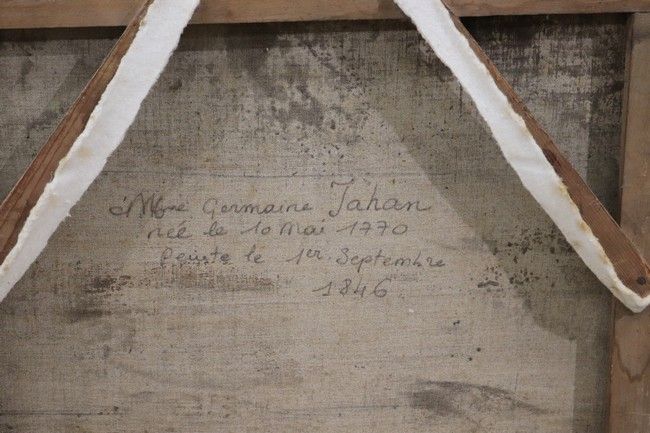 Mme Germaine Jahan
née le 10 Mai 1770
Peinte le 1er Septembre
1846